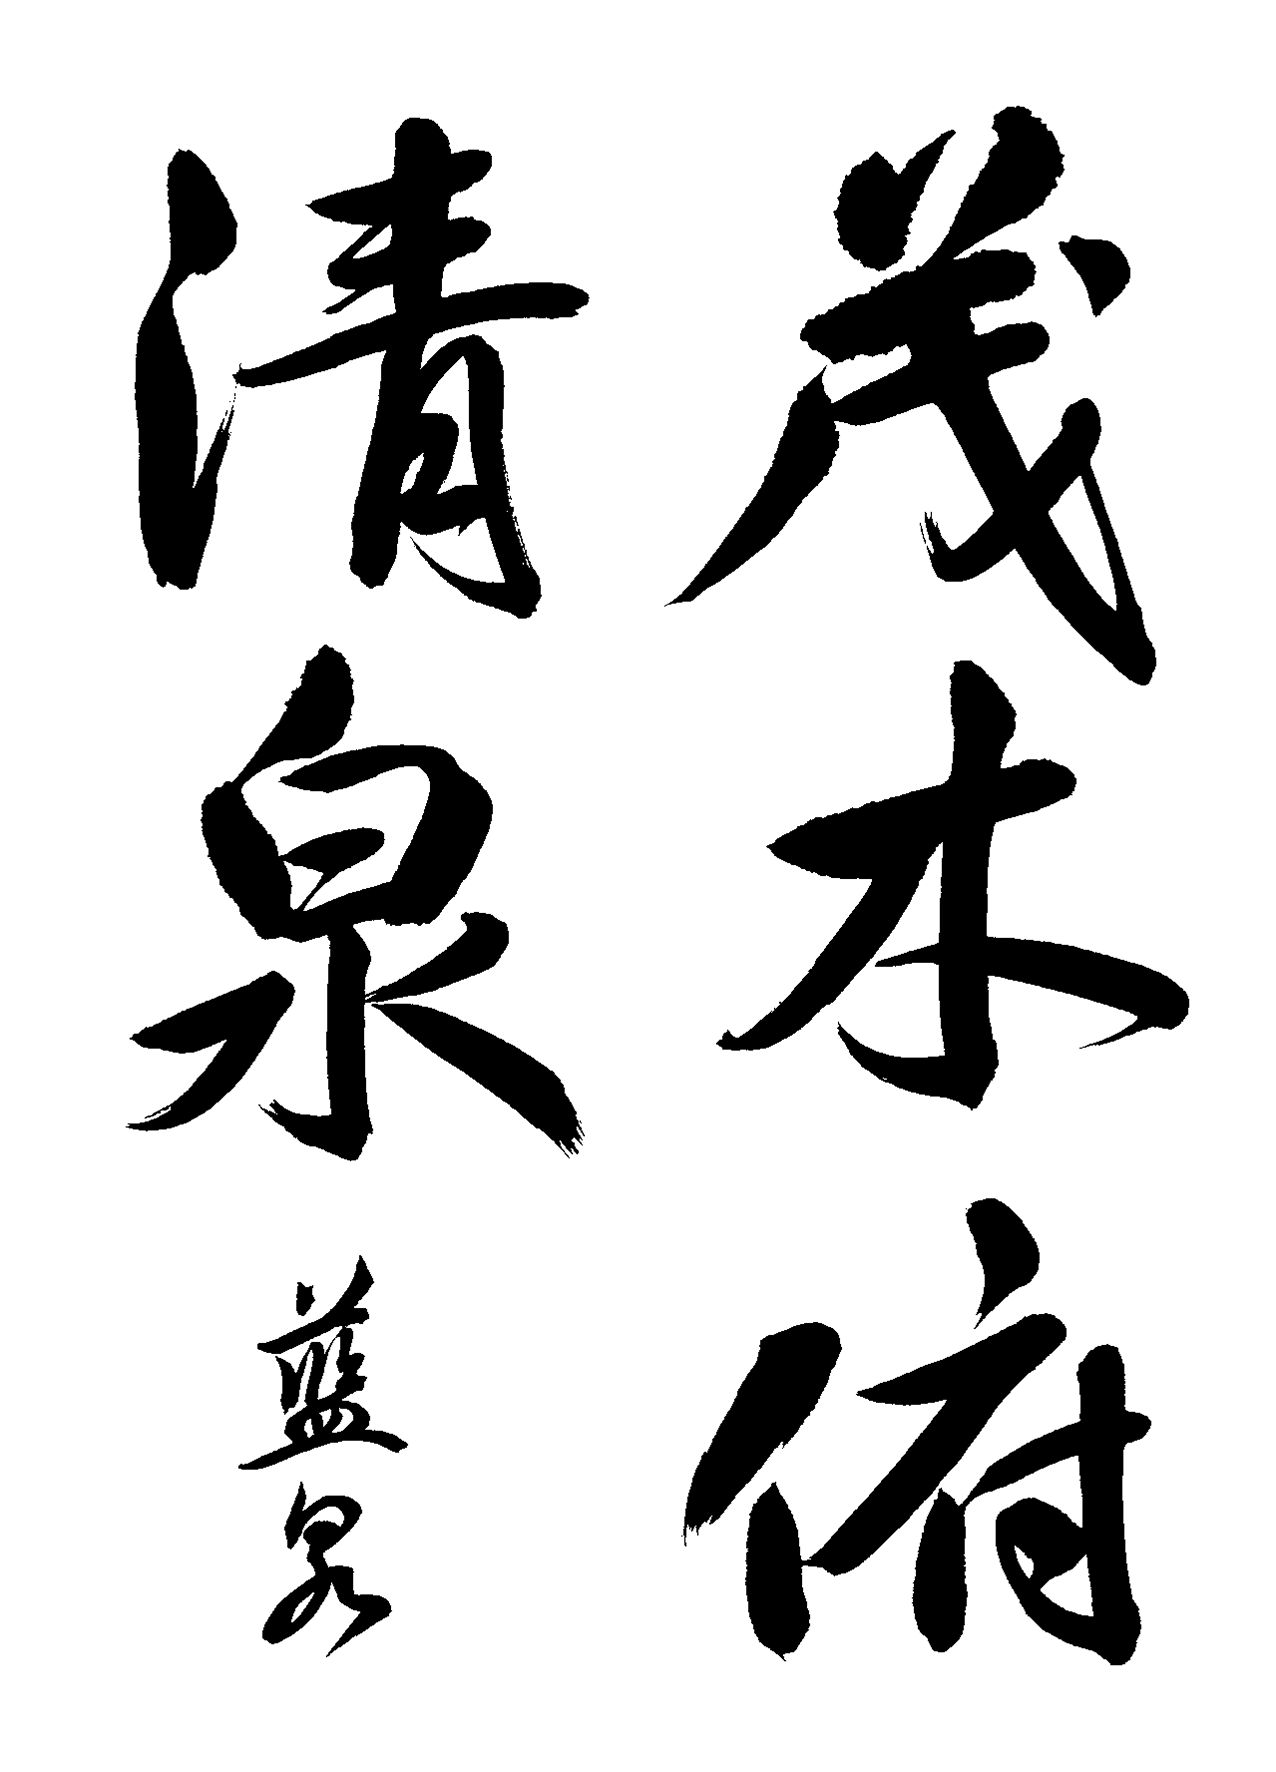 茂木俯
清泉
藍泉